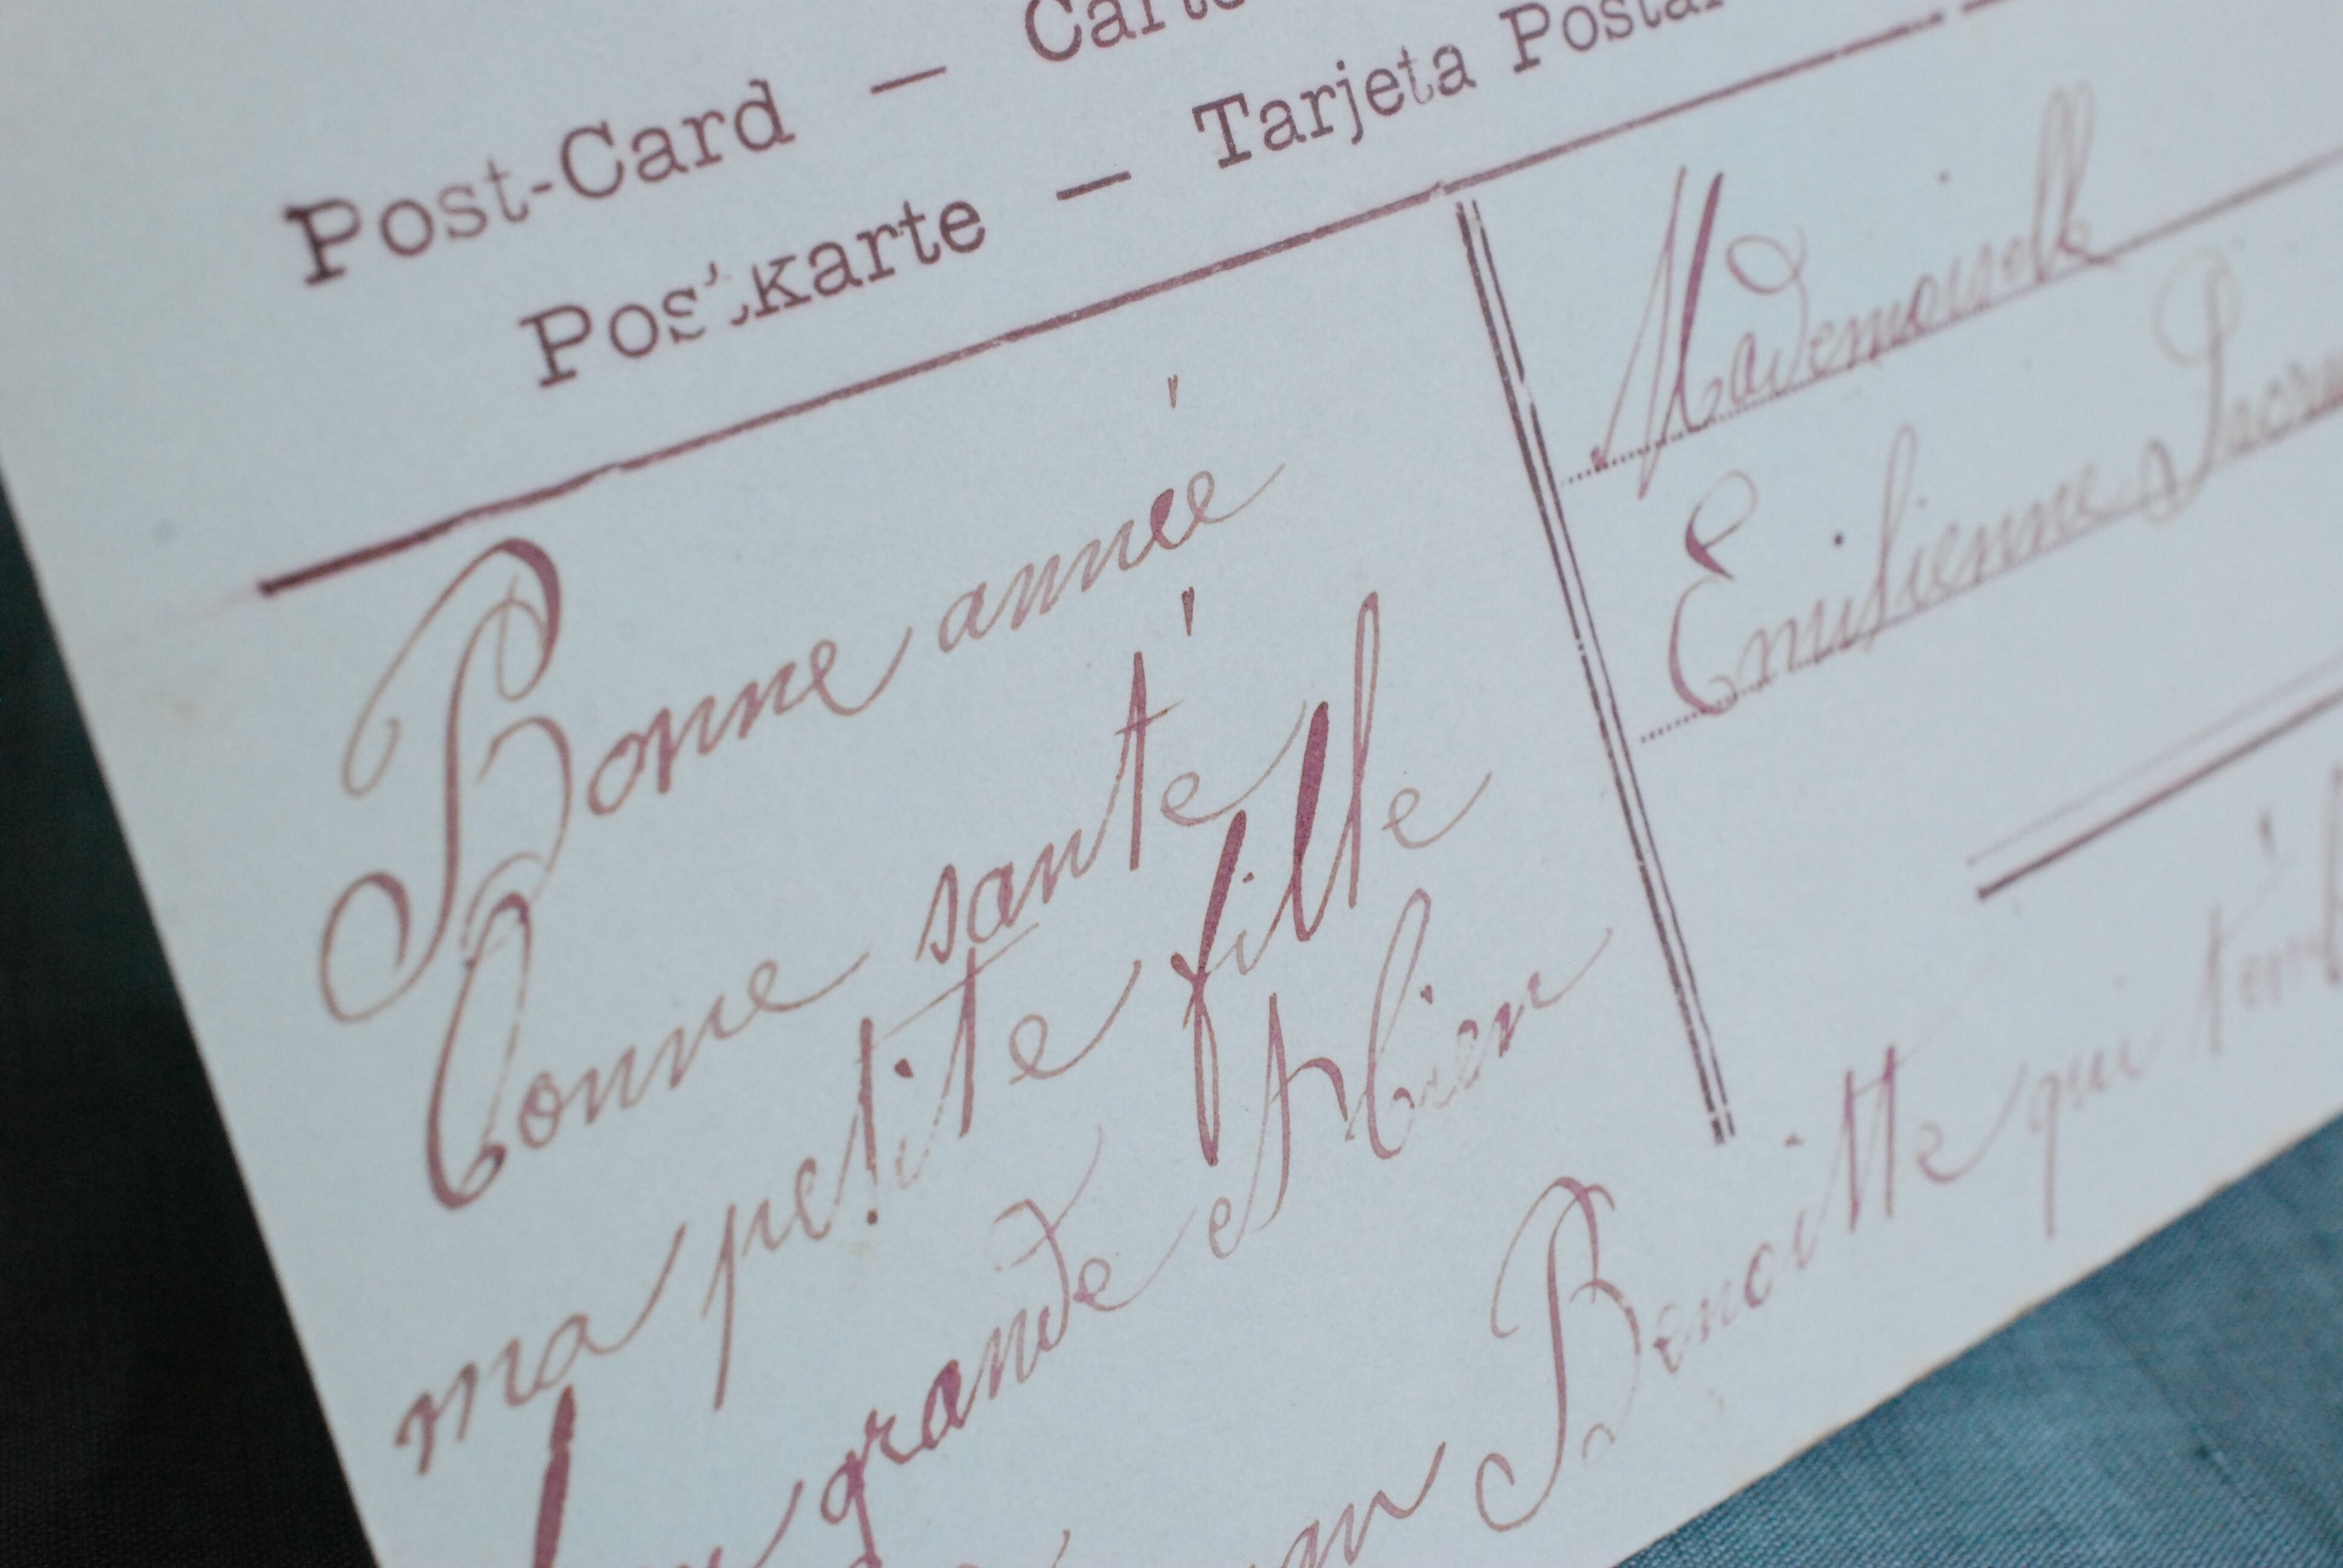 Post-Card — Carte
Postkarte — Tarjeta Postal
Bonne année
bonne santé
ma petite fille
grande et bien
Benoitte qui
Mademoiselle
Emilienne